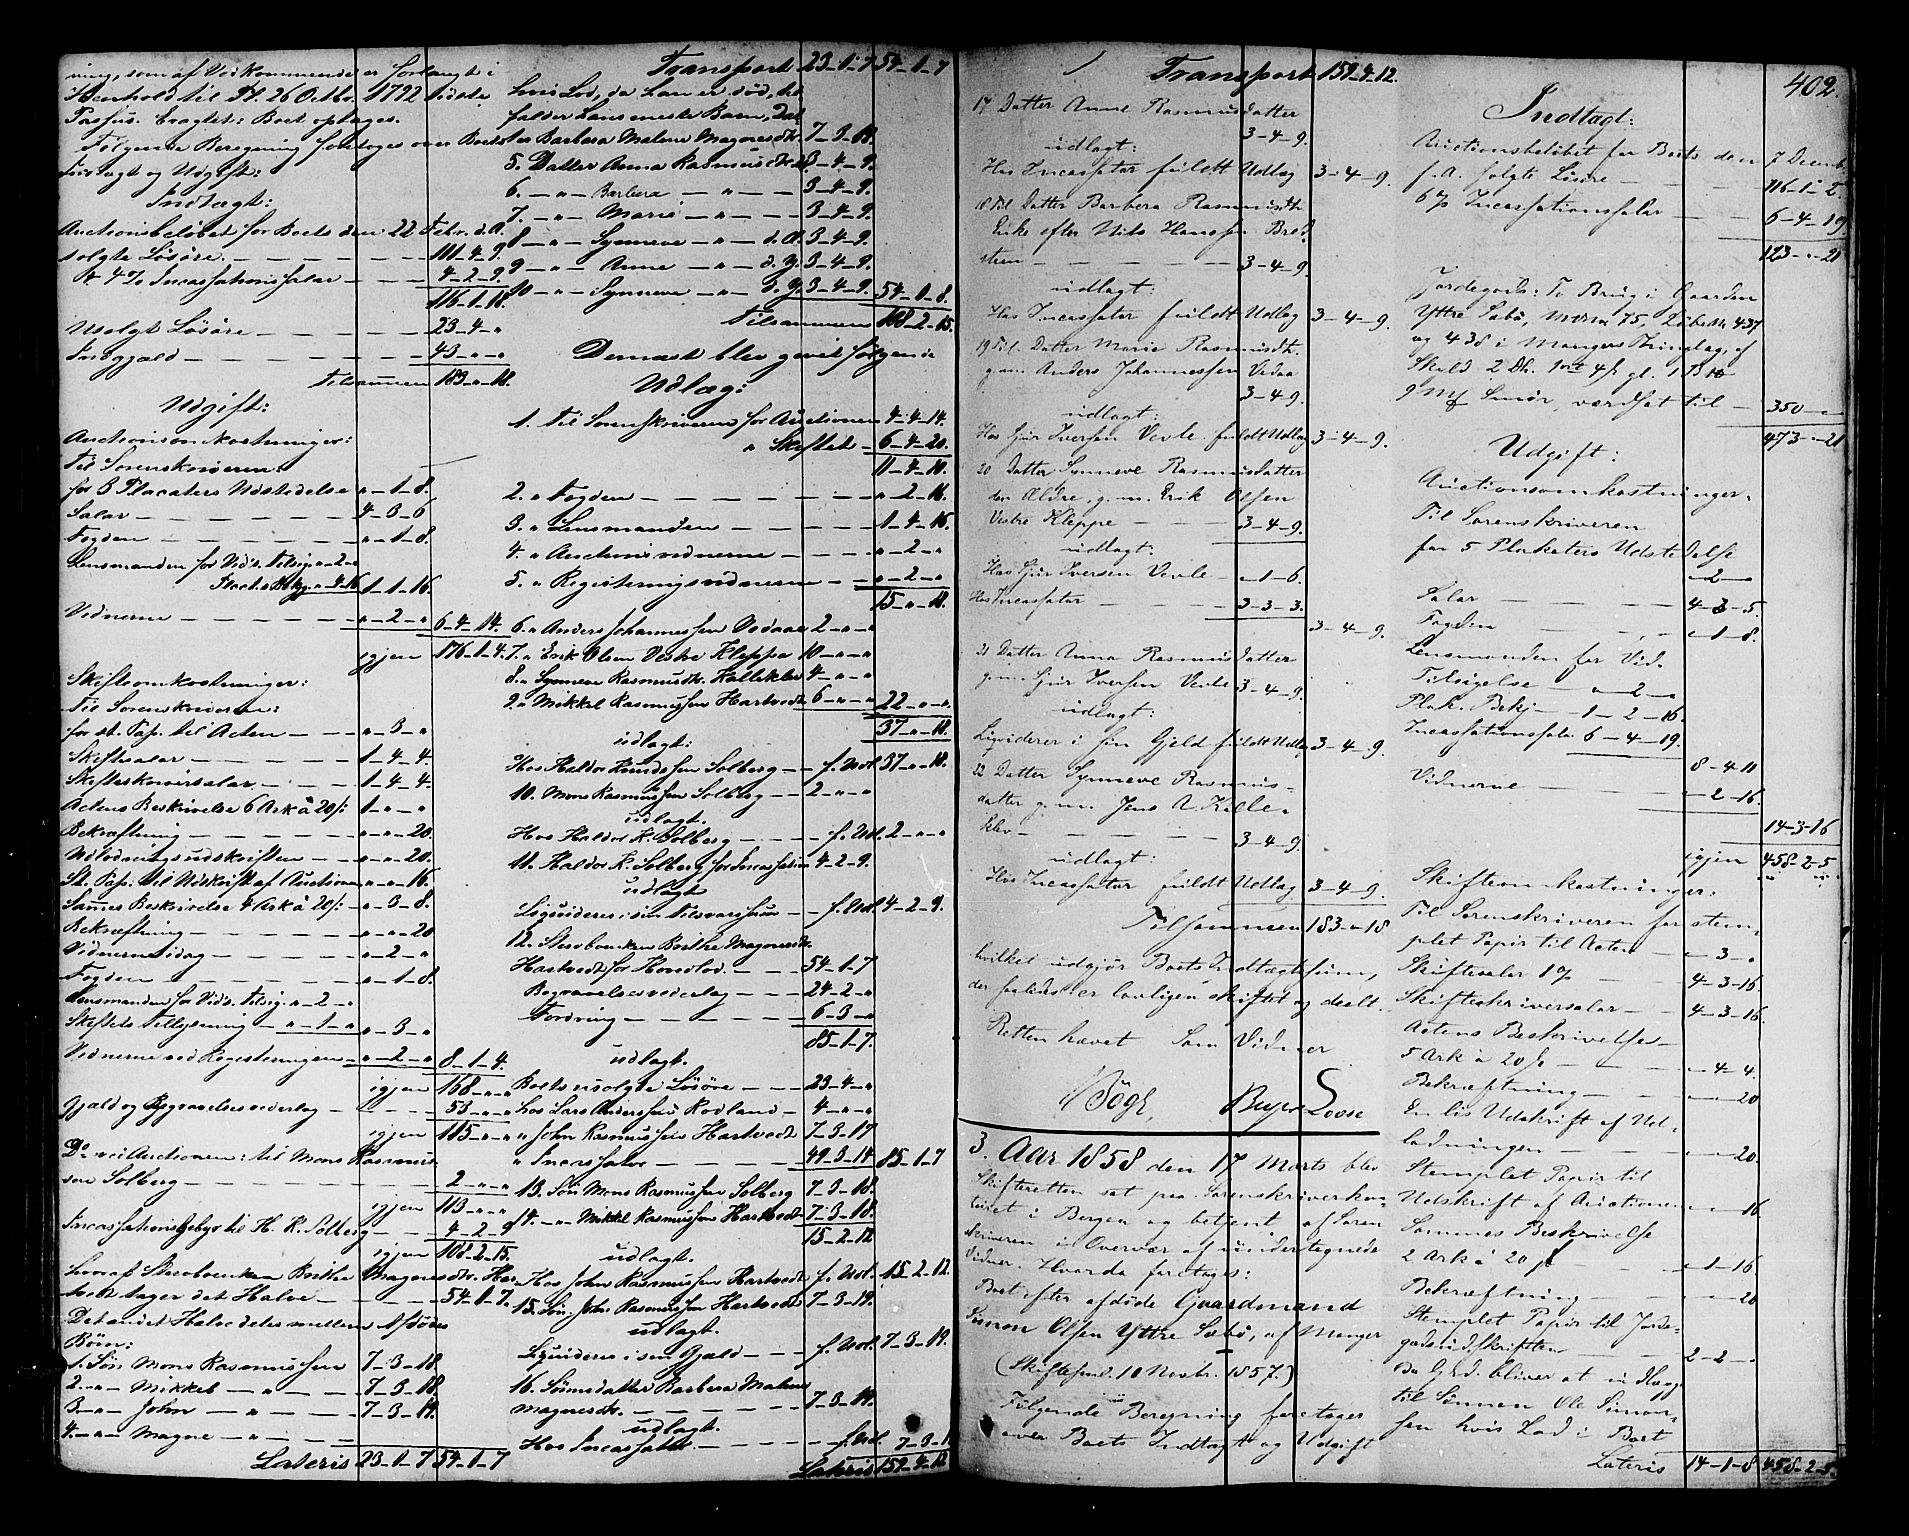 ning, som af Vedkommende er forlangt i
Henhold til Pl. 26 Octbr. 1772 sidste
Passus. Eragtet: Boet optages.
Følgende Beregning foretoges over Boets
Indtægt og Udgift:
Indtægt:
Auctionsbeløbet for Boets den 22 Febr. d. A.
solgte Løsøre — 111-4-9.
4 % Incassationssalar — 4-2-9.
116-1-18.
Usolgt Løsøre — 23-4-"
Indgjæld — 43-"-"
Tilsammen 183-"-18.
Udgift:
Auctionsomkostninger:
Til Sorenskriveren:
for 3 Placaters Udstedelse "-1-8.
Salar — 4-3-6
Fogden — "-1-8.
Lensmanden for Vid's. Tilsig. "-2-"
Placts Bkjg. "-4-16 1-1-16.
Vidnerne — "-2-" 6-4-14.
igjen 176-1-4.
Skifteomkostninger:
Til Sorenskriveren:
for st. Pap. til Acten — "-3-"
Skiftesalar — 1-4-4
Skifteskriversalar — 1-4-4.
Actens Beskrivelse 6 Ark à 20/: 1-"-"
Bekræftning — "-"-20.
Udlodningsudskriften — "-"-20.
St. Pap. til Udskrift af Auction "-"-16.
Sammes Beskrivelse 4 Ark à 20/: "-3-8.
Bekræftning — "-"-20
Vidnerne idag — "-2-"
Fogden — "-1-8.
Lensmanden for Vid's. Tilsig. "-2-"
Skiftets Tillysning — "-1-" "-3-"
Vidnerne ved Registeringen — "-2-" 8-1-4.
igjen 168-"-"
Gjæld og Begravelsesvederlag — 53-"-"
igjen 115-"-"
D° ved Auctionen: til Mons Rasmus-
sen Solberg — 2-"-"
igjen 113-"-"
Incassationsgebyr til H. K. Solberg — 4-2-9
igjen 108-2-15.
hvoraf Sterboenken Brithe Magnesdtr. Har-
tvedt tager det Halve — 54-1-7.
Det andet Halve deles mellem Afdødes
Børn:
1. Søn Mons Rasmussen 7-3-18
2. -"- Mikkel -"- — 7-3-18
3. -"- John -"- — 7-3-19.
4. -"- Magne -"- —
Lateris 23-1-7 54-1-7
Transport 23-1-7 54-1-7
hvis Lod, da han er død, til-
falder hans eneste Barn, Dat-
ter Barbara Malene Magnesdtr. 7-3-19.
5. Datter Anna Rasmusdtr. 3-4-9.
6. -"- Barbera -"- 3-4-9.
7. -"- Marie -"- 3-4-9.
8 -"- Synneve -"- d. Æ. 3-4-9.
9 -"- Anne -"- d. Y. 3-4-9.
10 -"- Synneve -"- d. Y. 3-4-9. 54-1-8.
Tilsammen 108-2-15.
Dernæst blev givet følgende
Udlæg:
1. Til Sorenskriveren for Auctionen 4-4-14.
" Skiftet 6-4-20.
11-4-10.
2. " Fogden — "-2-16.
3. " Lensmanden — 1-4-16.
4. " Auctionsvidnerne — "-2-"
5. " Registeringsvidnerne — "-2-"
15-"-18.
6. " Anders Johannessen Vedaae 2-"-"
7. " Erik Olsen Vestre Kleppe 10-"-"
8. " Synneve Rasmusdtr. Kalleklev 4-"-"
9. " Mikkel Rasmussen Hartvedt 6-"-" 22-"-"
37-"-18.
udlagt:
Hos Haldor Knudssen Solberg — f. Udl. 37-"-18.
10. Mons Rasmussen Solberg — 2-"-"
udlagt.
Hos Haldor K. Solberg — f. Udl. 2-"-"
11. Haldor K. Solberg for Incassation 4-2-9.
udlagt
Liquideres i sin Tilsvarssum — f. Udl. 4-2-9.
12. Sterboenken Brithe Magnesdtr.
Hartvedt for Hovedlod — 54-1-7
Begravelsesvederlag — 24-2-"
Fordring — 6-3-"
85-1-7.
udlagt.
Boets usolgte Løsøre — 23-4-"
hos Lars Anderssen Rodland — 4-"-"
" John Rasmussen Hartvedt 7-3-17
" Incassator — 49-3-14 85-1-7
13. Søn Mons Rasmussen Solberg 7-3-18.
14. -"- Mikkel Rasmussen Hartvedt 7-3-18.
15-2-12
udlagt.
Hos John Rasmussen Hartvedt f. Udl. 15-2-12.
15. Søn John Rasmussen Hartvedt 7-3-19.
udlagt.
Liquideres i sin Gjæld — f. Udl. 7-3-19.
16. Sønnsdatter Barbera Malene
Magnesdtr. — 7-3-19.
udlagt.
Hos Incassator — f. Udl. 7-3-1
Lateris 159-4-12
Transport 159-4-12.
17 Datter Anne Rasmusdatter
3-4-9.
udlagt:
Hos Incassator fuldt Udlæg 3-4-9.
18 Til Datter Barbera Rasmusdtr.
Enke efter Nils Hansen Bred-
steen — 3-4-9.
udlagt:
Hos Incassator fuldt Udlæg 3-4-9.
19 Til Datter Marie Rasmusdtr.
g. m. Anders Johannessen Vedaa
3-4-9.
udlagt:
Hos Sjur Iversen Vevle fuldt Udlæg 3-4-9.
20 Datter Synneve Rasmusdatter
den Ældre, g. m. Erik Olsen
Vestre Kleppe — 3-4-9.
udlagt:
Hos Sjur Iversen Vevle — "-1-6.
Hos Incassator — 3-3-3.
3-4-9.
21 Datter Anna Rasmusdatter
g. m. Sjur Iversen Vevle 3-4-9.
udlagt:
Liqviderer i sin Gjeld fuldt Udlæg 3-4-9.
22 Datter Synneve Rasmus-
datter g. m. Jens A. Kalle-
klev — 3-4-9.
udlagt:
Hos Incassator fuldt Udlæg 3-4-9.
Tilsammen 183-"-18
hvilket udgjør Boets Indtægtssum,
der saaledes er lovligen skiftet og deelt.
Retten hævet Som Vidner
Bøgh, Beyer Loose
3. Aar 1858 den 17 Marts blev
Skifteretten sat paa Sorenskriverkon-
toiret i Bergen og betjent af Soren-
skriveren i Overvær af undertegnede
Vidner. Hvorda foretages:
Boet efter afdøde Gaardmand
Simon Olsen Yttre Sæbø, af Manger
(Skifteforl. 10 Novbr. 1857.)
Følgende Beregning foretages
over Boets Indtægt og Udgift
402.
Indtægt:
Auctionsbeløbet for Boets den 7 Decemb.
f. A. solgte Løsøre — 116-1-2.
6 % Incassationssalar — 6-4-19.
123-"-21
Jordegods: To Brug i Gaarden
Yttre Sæbø, Matr. N° 75, Løbe N° 437
og 438 i Mangers Thinglag, af
Skyld 2 Dlr. 1 ort 4 s. gl. 1 B
9 Mk Smør, værdsat til — 350-"-"
473-"-21
Udgift:
Auctionsomkostninger.
Til Sorenskriveren
for 5 Plakaters Udstedelse
"-2-"
Salar — 4-3-5.
Fogden — "-1-8.
Lensmanden for Vid.
Tilsigelse — "-2-"
Plak. Bekj. — 1-2-16.
Incassationssalr. 6-4-19.
8-4-11
Vidnerne — "-2-16.
14-3-16
igjen 458-2-5
Skifteomkostninger:
Til Sorenskriveren for stem-
plet Papir til Acten — "-3-"
Skiftesalar 1 % — 4-3-16.
Skifteskriversalar — 4-3-16.
Actens Beskrivelse
5 Ark à 20 s. — "-4-4.
Bekræftning — "-"-20
En lis Udskrift af Ud-
lodningen — "-"-20.
Stemplet Papir til
Udskrift af Auctionen "-"-16.
Sammes Beskrivelse
2 Ark à 20 s. — "-1-16
Bekræftning — "-"-20
Stemplet Papir til Jorde-
godsudskriften — 2-2-"
da Grd. bliver at udlægge
til Sønnen Ole Simon-
sen hvis Lod i Boet
Lateris 14-1-8 458-2-5.